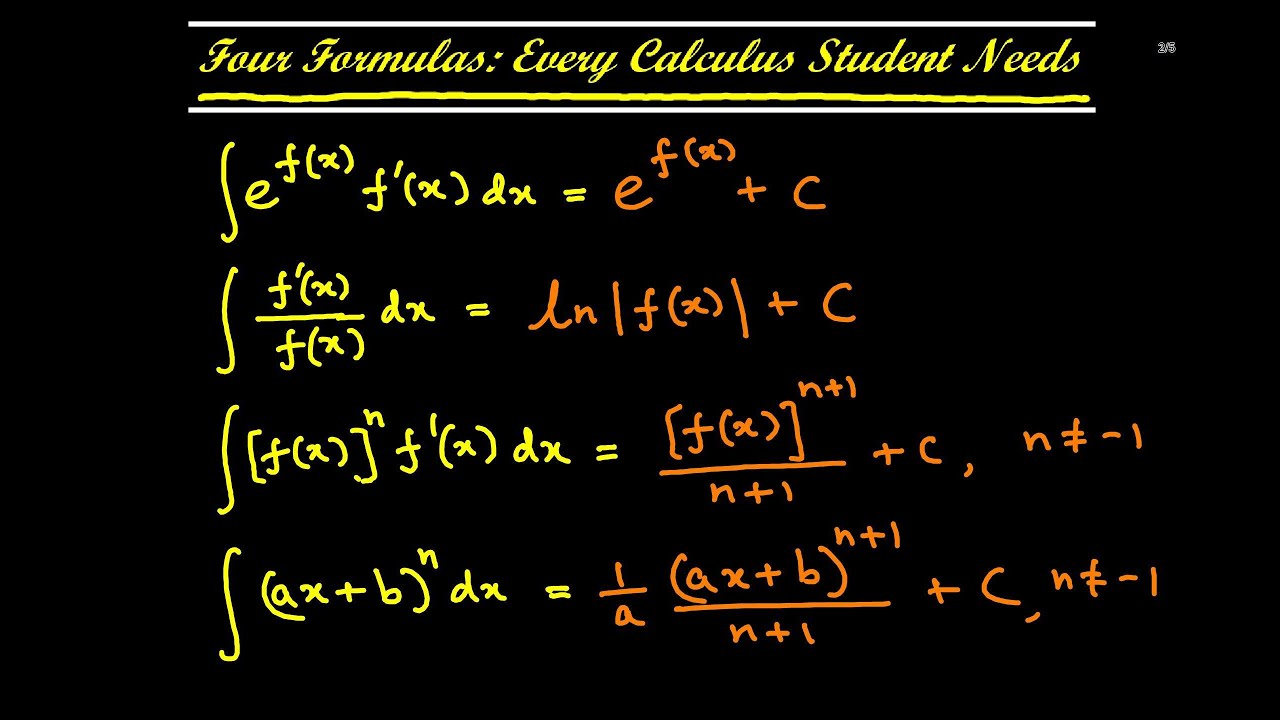 Four Formulas: Every Calculus Student Needs
2/5
∫ e^{f(x)} f'(x) dx = e^{f(x)} + C
∫ \frac{f'(x)}{f(x)} dx = ln |f(x)| + C
∫ [f(x)]^n f'(x) dx = \frac{[f(x)]^{n+1}}{n+1} + C, n ≠ -1
∫ (ax+b)^n dx = \frac{1}{a} \frac{(ax+b)^{n+1}}{n+1} + C, n ≠ -1